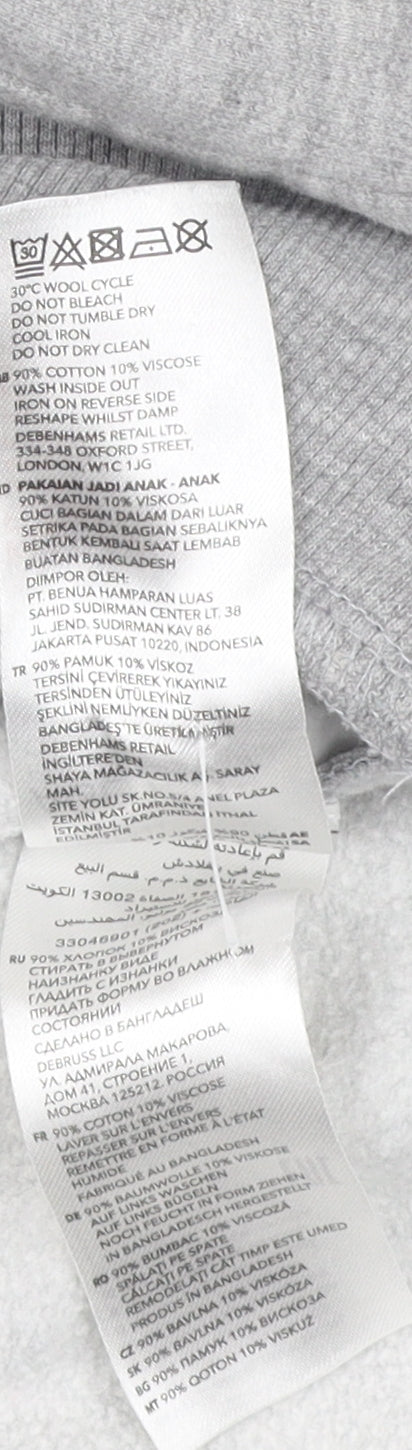 30
30°C WOOL CYCLE
DO NOT BLEACH
DO NOT TUMBLE DRY
COOL IRON
DO NOT DRY CLEAN
90% COTTON 10% VISCOSE
WASH INSIDE OUT
IRON ON REVERSE SIDE
RESHAPE WHILST DAMP
DEBENHAMS RETAIL LTD.
334-348 OXFORD STREET,
LONDON, W1C 1JG
ID PAKAIAN JADI ANAK - ANAK
90% KATUN 10% VISKOSA
CUCI BAGIAN DALAM DARI LUAR
SETRIKA PADA BAGIAN SEBALIKNYA
BENTUK KEMBALI SAAT LEMBAB
BUATAN BANGLADESH
DIIMPOR OLEH:
PT. BENUA HAMPARAN LUAS
SAHID SUDIRMAN CENTER LT. 38
JL. JEND. SUDIRMAN KAV 86
JAKARTA PUSAT 10220, INDONESIA
TR 90% PAMUK 10% VİSKOZ
TERSİNİ ÇEVİREREK YIKAYINIZ
TERSİNDEN ÜTÜLEYİNİZ
ŞEKLİNİ NEMLİYKEN DÜZELTİNİZ
BANGLADEŞ'TE ÜRETİLMİŞTİR
DEBENHAMS RETAIL
İNGİLTERE'DEN
SHAYA MAĞAZACILIK SARAY
MAH.
SİTE YOLU SK.NO.5/A PLAZA
ZEMİN KAT. ÜMRANİYE
İSTANBUL TARAFINDAN İTHAL
EDİLMİŞTİR
قسم البيع
13002 الكويت
المهندسين
RU 90% ХЛОПОК 10% ВИСКОЗА
СТИРАТЬ В ВЫВЕРНУТОМ
НАИЗНАНКУ ВИДЕ
ГЛАДИТЬ С ИЗНАНКИ
ПРИДАТЬ ФОРМУ ВО ВЛАЖНОМ
СОСТОЯНИИ
СДЕЛАНО В БАНГЛАДЕШ
DEBRUSS LLC
УЛ. АДМИРАЛА МАКАРОВА,
ДОМ 41, СТРОЕНИЕ 1,
МОСКВА 125212. РОССИЯ
FR 90% COTON 10% VISCOSE
LAVER SUR L'ENVERS
REPASSER SUR L'ENVERS
REMETTRE EN FORME À L'ÉTAT
HUMIDE
FABRIQUÉ AU BANGLADESH
DE 90% BAUMWOLLE 10% VISKOSE
AUF LINKS WASCHEN
AUF LINKS BÜGELN
NOCH FEUCHT IN FORM ZIEHEN
IN BANGLADESCH HERGESTELLT
RO 90% BUMBAC 10% VISCOZĂ
SPĂLAȚI PE SPATE
CĂLCAȚI PE SPATE
REMODELAȚI CÂT TIMP ESTE UMED
PRODUS ÎN BANGLADESH
CZ 90% BAVLNA 10% VISKÓZA
SK 90% BAVLNA 10% VISKÓZA
BG 90% ПАМУК 10% ВИСКОЗА
MT 90% QOTON 10% VISKUŻ